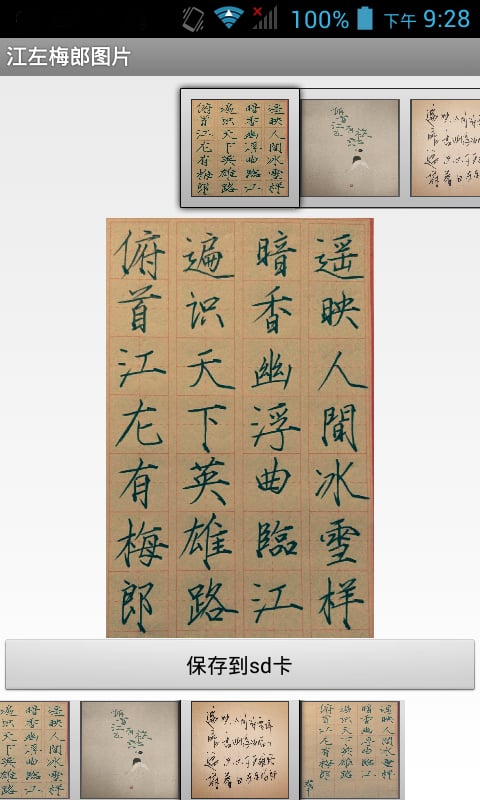 100% 下午 9:28
江左梅郎图片
遥映人間冰雪样
暗香幽浮曲臨江
遍识天下英雄路
俯首江左有梅郎
保存到sd卡